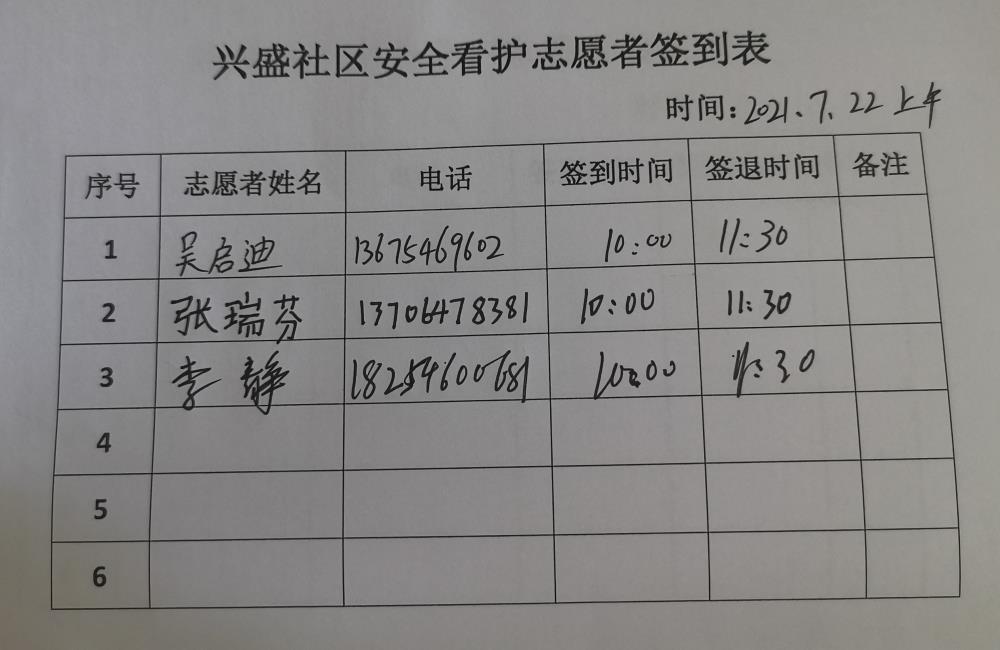 兴盛社区安全看护志愿者签到表
时间:2021.7.22上午
序号 志愿者姓名 电话 签到时间 签退时间 备注
1 吴启迪 13675469602 10:00 11:30
2 张瑞芬 13706478381 10:00 11:30
3 李静 18254600681 10:00 11:30
4
5
6